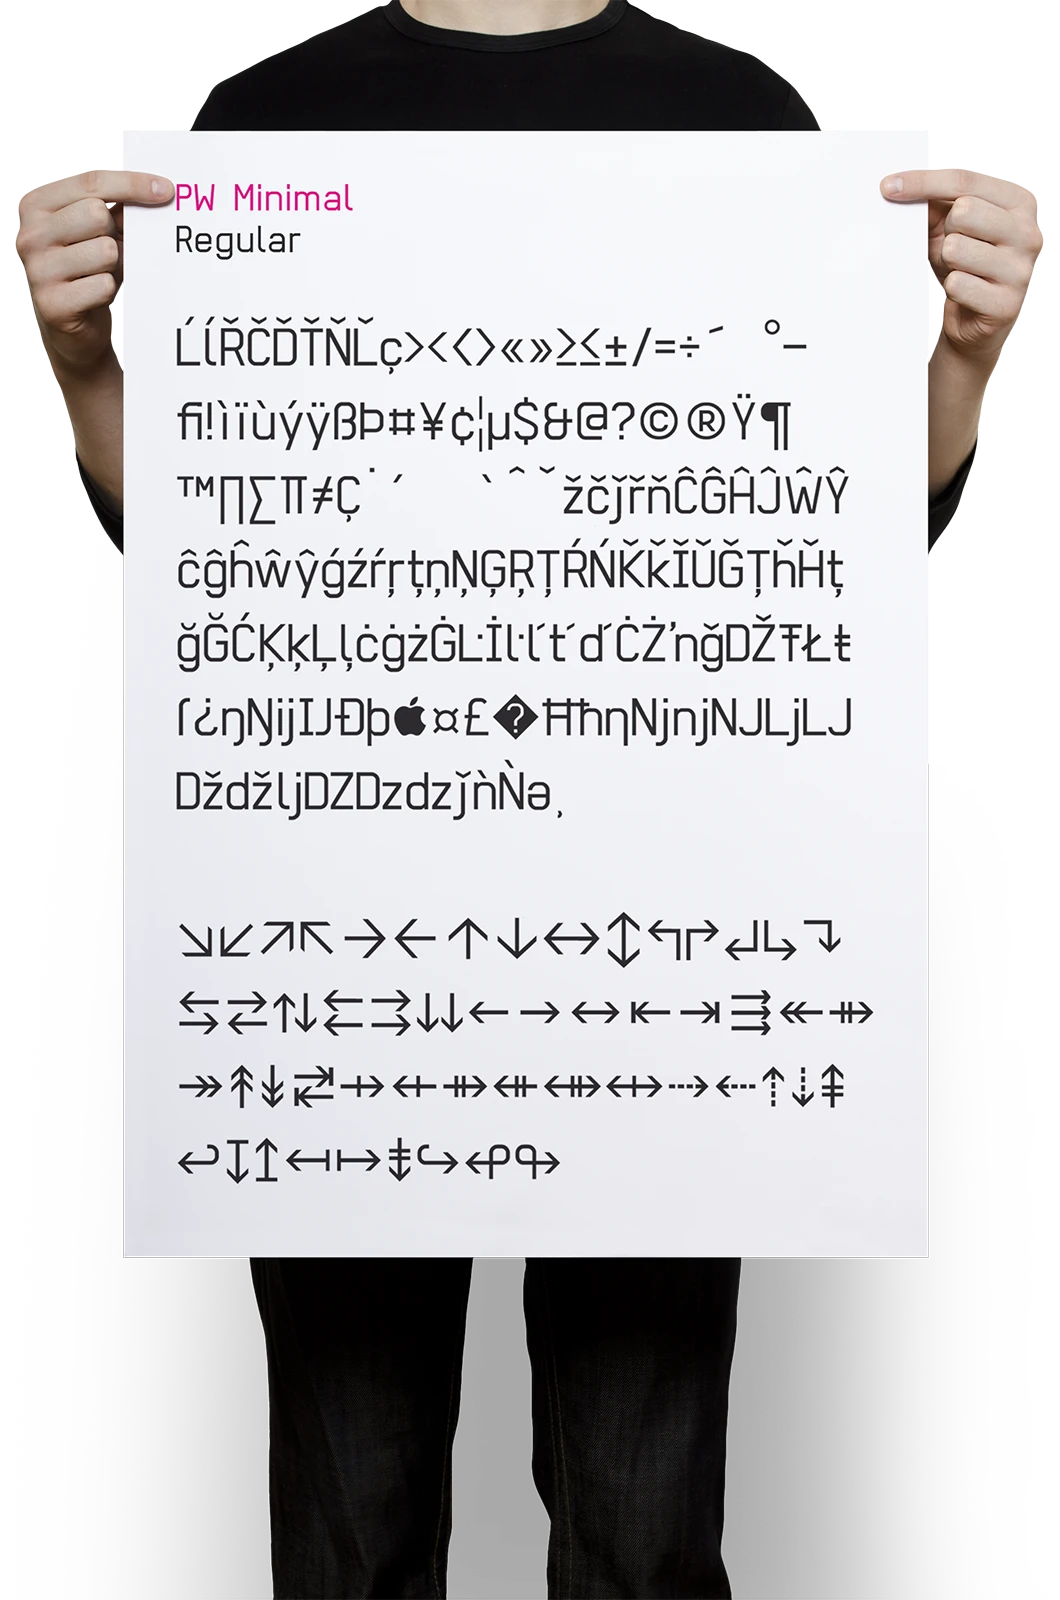 PW Minimal
Regular
ĹĺŘČĎŤŇĽç><‹›«»≥≤±/=÷´ °–
ﬁ!ìïùýÿßÞ¤¥¢¦µ$&@?©®Ÿ¶
™∏∑π≠Ç˙´ `ˆˇžčǰřňĈĜĤĴŴŶ
ĉĝĥŵŷǵźŕŗţņŅĢŖŢŔŃǨǩǏǓǦŢȟȞţ
ğĞĆĶķĻļċġżĠĿİŀľťďĊŻŉğDŽŦŁŧ
ſ¿ŋŊĳĲĐþ¤£�ĦħηǋǌǊǈǇ
ǅǆǉǱǲǳǰǹǸə¸
↘↙↗↖→←↑↓↔↕↰↱↲↳↴
⇆⇄⇅⇇⇉⇊←→↔⇤⇥⇶↞⇻
↠↟↡↹⇸⇷⇻⇺⇼⇹⇢⇠⇡⇣⇞
↩↧↥↤↦⇟↪↫↬